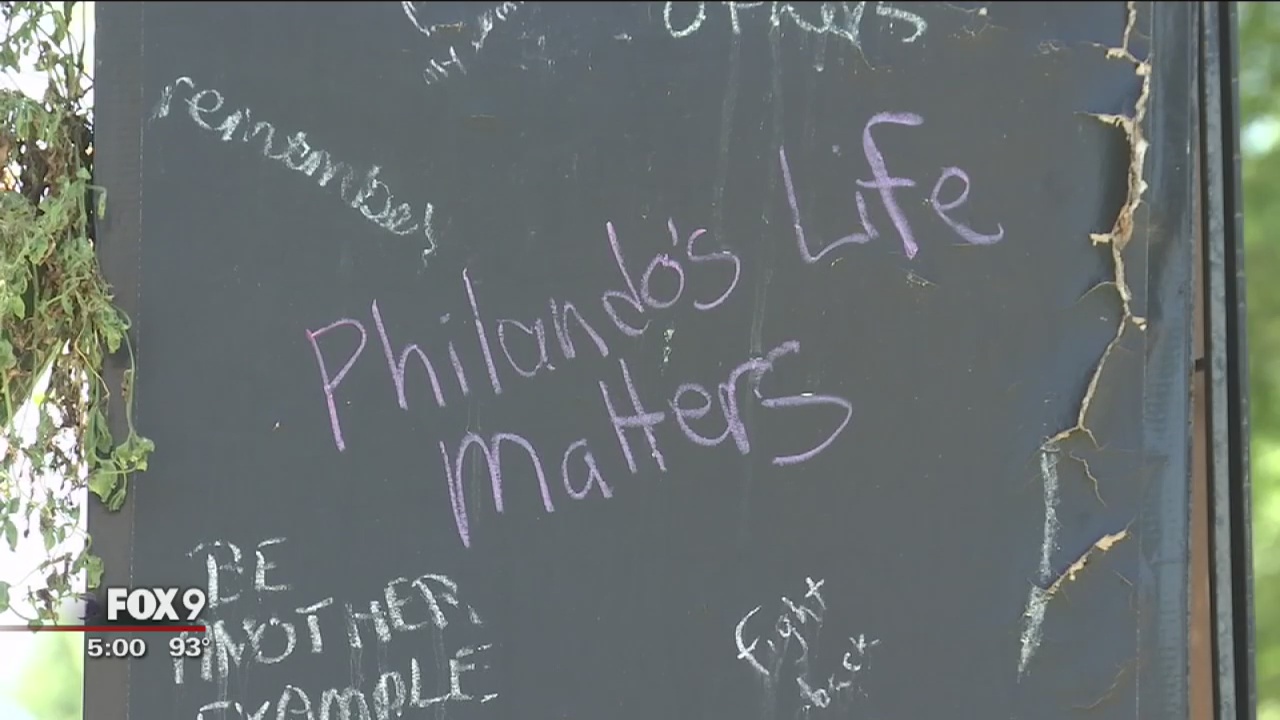 others
remember
Philando's Life
Matters
BE
ANOTHER
EXAMPLE
Fight
back
FOX 9
5:00 93°